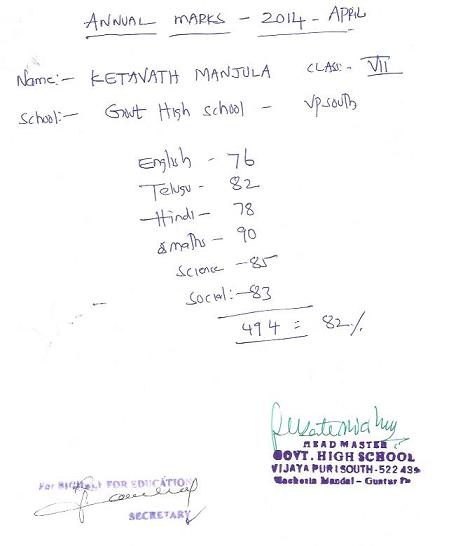 ANNUAL MARKS - 2014 - APRIL
Name:- KETAVATH MANJULA CLASS:- VII
School:- Govt High school - VPSouth
English - 76
Telugu - 82
Hindi - 78
maths - 90
Science - 85
Social:- 83
494 = 82%
HEAD MASTER
GOVT. HIGH SCHOOL
VIJAYA PURI SOUTH-522 439
Macherla Mandal - Guntur
For FOR EDUCATION
SECRETARY